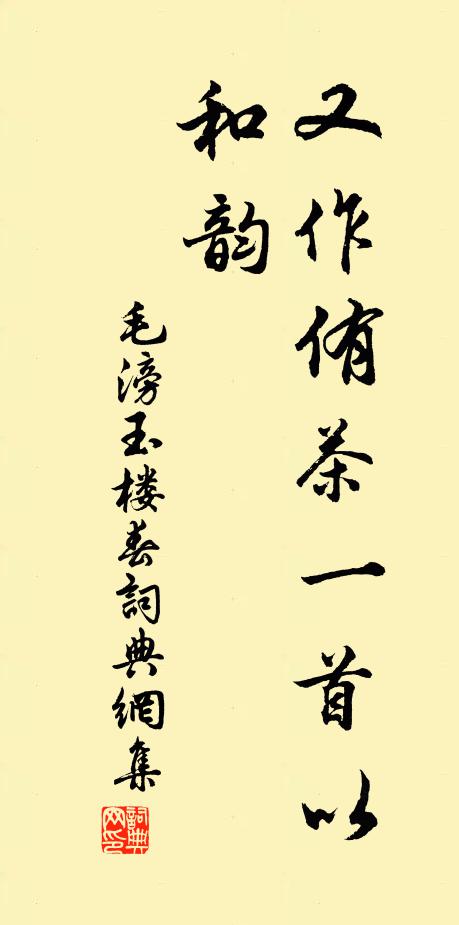 又作侑茶一首以
和韵
毛滂玉楼春詞典網集
詞典
网印